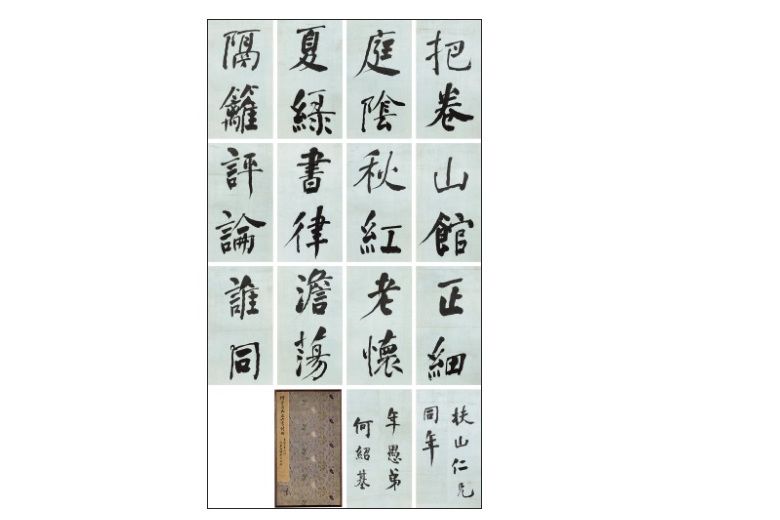 把卷
庭陰
夏綠
隔籬
山館
秋紅
書律
評論
正細
老懷
澹蕩
誰同
扶山仁兄
同年
年愚弟
何紹基